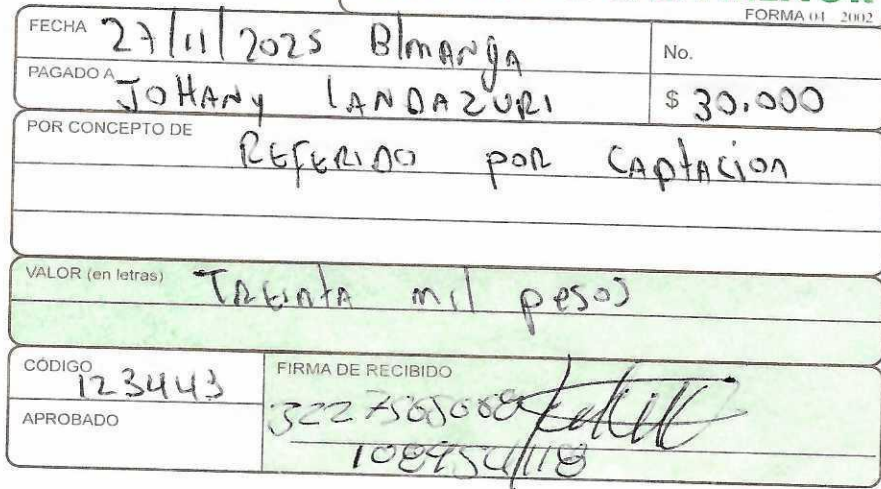 FORMA 01 2002
FECHA 27/11/2025 B/manga
No.
PAGADO A JOHANY LANDAZURI
$ 30.000
POR CONCEPTO DE
REFERIDO POR CAPTACION
VALOR (en letras) TREINTA mil pesos
CÓDIGO 123443
FIRMA DE RECIBIDO
APROBADO